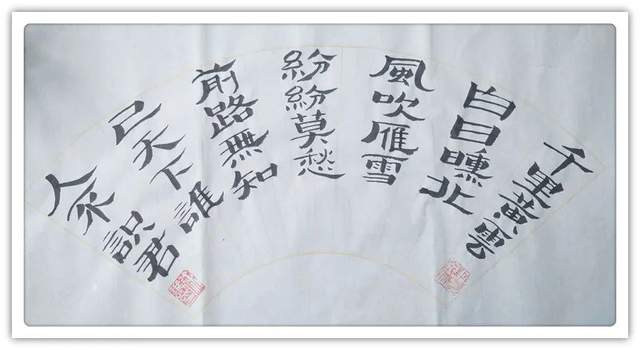 千里黃雲
白日曛北
風吹雁雪
紛紛莫愁
前路無知
己天下誰
人不識君